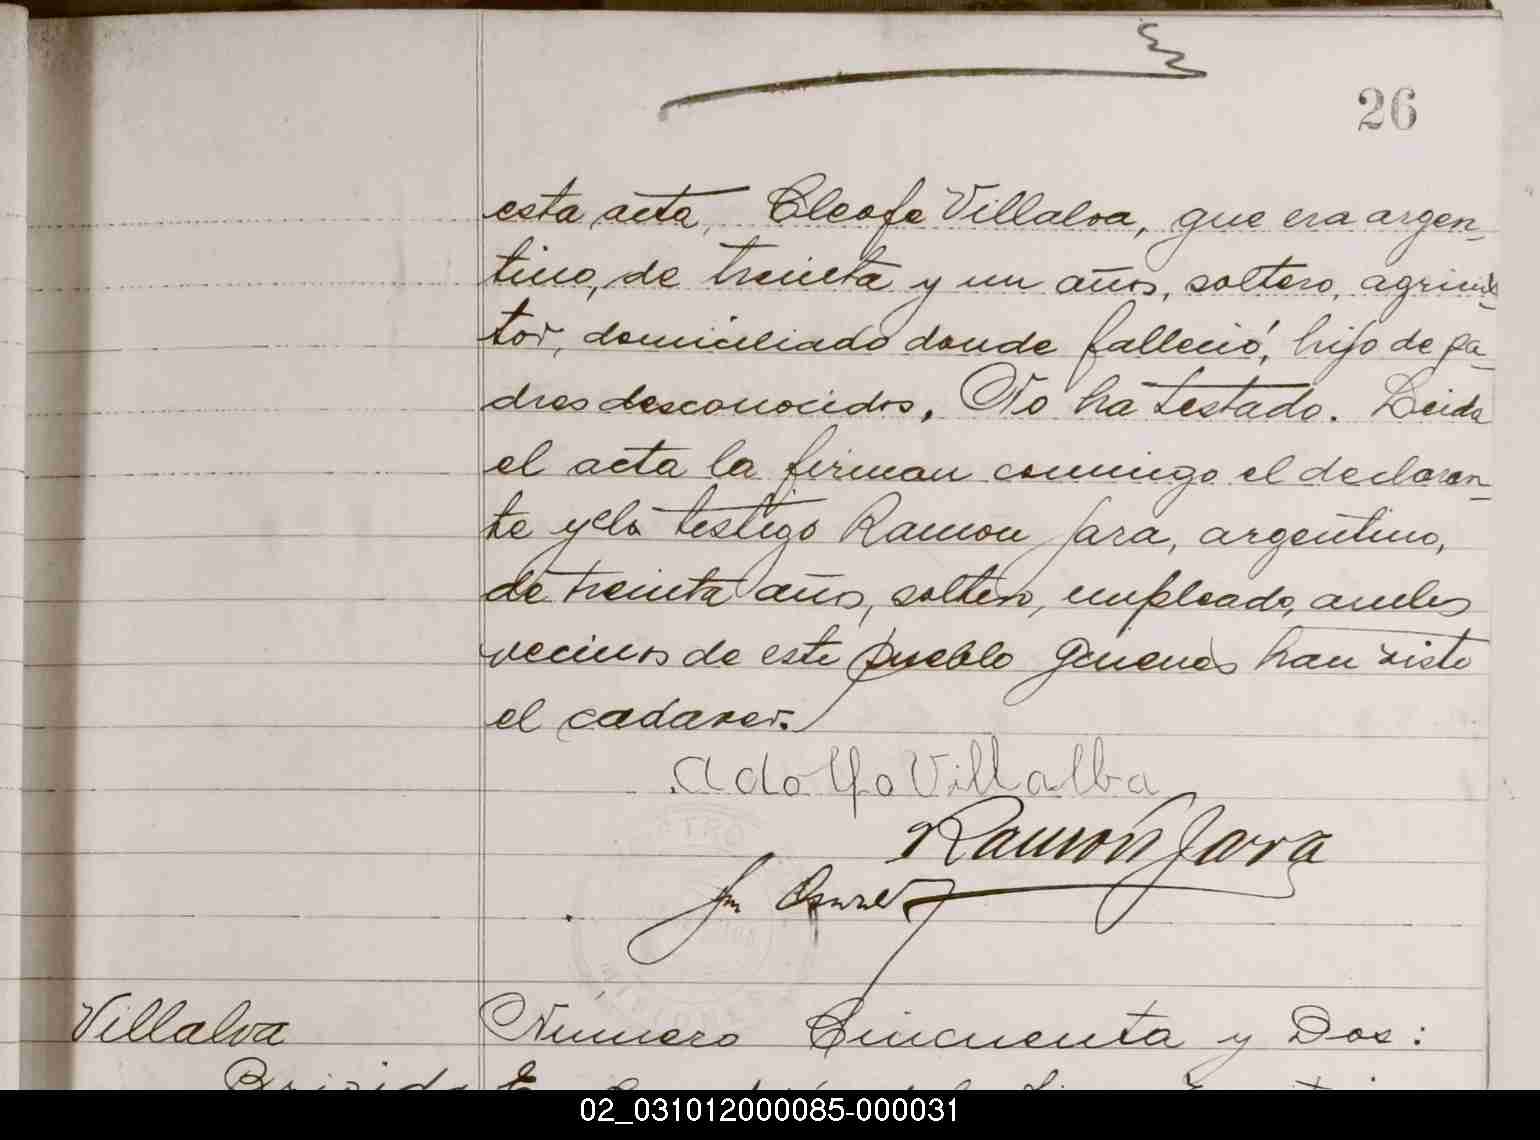 26
esta acta, Cleofe Villalva, que era argen-
tino, de treinta y un años, soltero, agricul-
tor, domiciliado donde falleció, hijo de pa-
dres desconocidos. No ha testado. Leida
el acta la firman conmigo el declaran-
te y el testigo Ramon Jara, argentino,
de treinta años, soltero, empleado, ambos
vecinos de este pueblo quienes han visto
el cadaver.
Adolfo Villalba
Ramón Jara
Villalva
Número Cincuenta y Dos:
Brigida
02_031012000085-000031